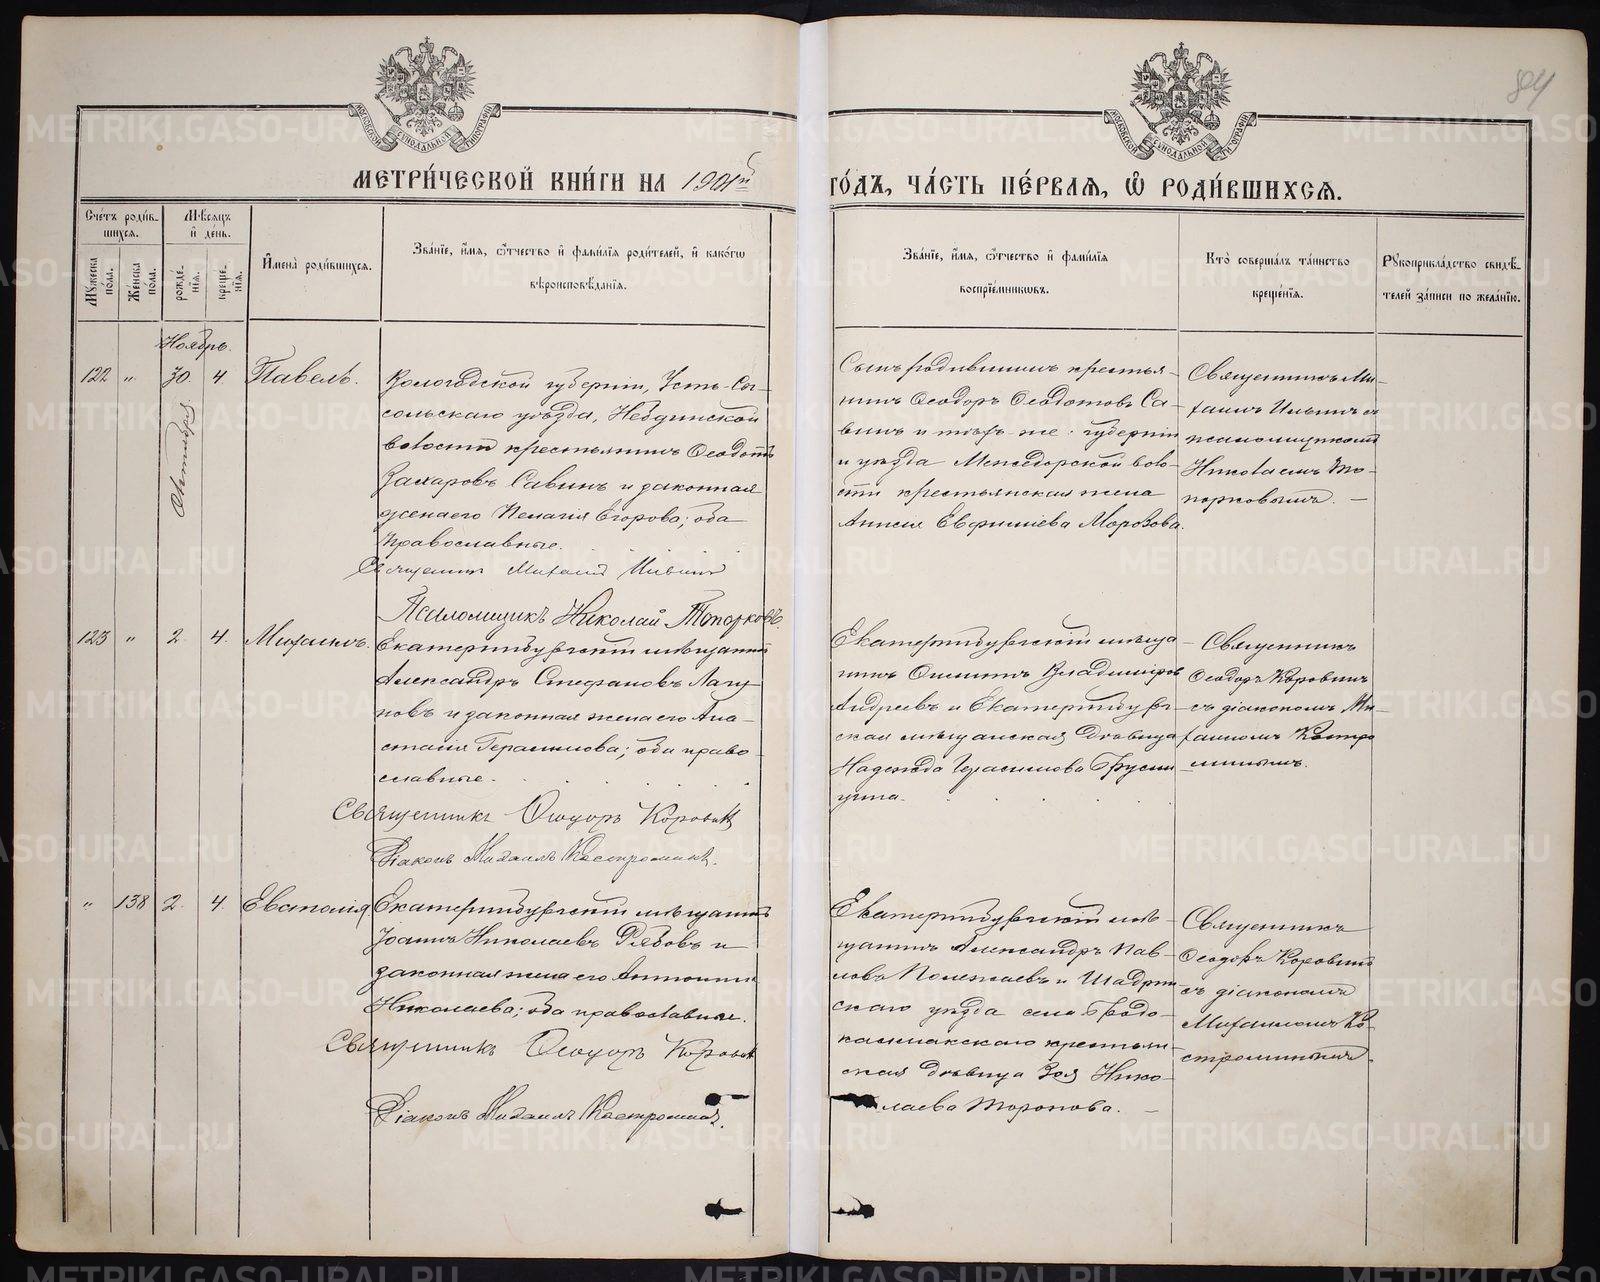 84
МОСКОВСКОЙ СѴНОДАЛЬНОЙ ТИПОГРАФІИ
МОСКОВСКОЙ СѴНОДАЛЬНОЙ ТИПОГРАФІИ
МЕТРИ́ЧЕСКОЙ КНИ́ГИ НА 1901й ГО́ДЪ, ЧА́СТЬ ПЕ́РВАЯ, Ѡ РОДИ́ВШИХСЯ.
Сче́тъ роди́в-
шихся.
Мѣ́сяцъ
и де́нь.
Му́жеска
по́ла.
Же́нска
по́ла.
рожде́-
нія.
креще́-
нія.
И҆мена̀ роди́вшихся.
Зва́ніе, и҆́мя, ѻ҆́тчество и҆ фами́лія роди́телей, и҆ како́гѡ
вѣроисповѣ́данія.
Зва́ніе, и҆́мя, ѻ҆́тчество и҆ фами́лія
воспріе́мникѡвъ.
Кто̀ соверша́лъ та́инство
креще́нія.
Рꙋкоприкла́дство свидѣ́-
телей за́писи по жела́нію.
Ноябрь.
122 " 30. 4. Павелъ.
Вологодской губерніи, Усть-Сы-
сольскаго уѣзда, Небдинской
волости крестьянинъ Ѳеодотъ
Захаровъ Савинъ и законная
жена его Пелагія Егорова; оба
православные.
Священникъ Михаилъ Ильинъ
Псаломщикъ Николай Топорковъ.
Сынъ родившимъ крестья-
нинъ Ѳеодоръ Ѳеодотовъ Са-
винъ и тѣхъ-же губерніи
и уѣзда волос-
ти крестьянская жена
Анисія Морозова.
Священникъ Ми-
хаилъ Ильинъ съ
псаломщикомъ
Николаемъ То-
порковымъ.
123 " 2. 4. Михаилъ.
Екатеринбургскій мѣщанинъ
Александръ Стефановъ Лагу-
новъ и законная жена его Ана-
стасія Герасимова; оба право-
славные.
Священникъ Ѳеодоръ Коровинъ
Діаконъ Михаилъ Костроминъ.
Екатеринбургскій мѣща-
нинъ Владиміровъ
Андреевъ и Екатеринбург-
ская мѣщанская дѣвица
Надежда Герасимова

Священникъ
Ѳеодоръ Коровинъ
съ діакономъ Ми-
хаиломъ Костро-
минымъ.
" 138 2. 4. Евстолія
Екатеринбургскій мѣщанинъ
Іоаннъ Николаевъ Рябовъ и
законная жена его Антонина
Николаева; оба православные.
Священникъ Ѳеодоръ Коровинъ
Діаконъ Михаилъ Костроминъ.
Екатеринбургскій мѣ-
щанинъ Александръ Пав-
ловъ Полежаевъ и Шадрин-
скаго уѣзда села Градо-
калмакскаго крестьян-
ская дѣвица Зоя Нико-
лаева Торопова.
Священникъ
Ѳеодоръ Коровинъ
съ діакономъ
Михаиломъ Ко-
строминымъ.
METRIKI.GASO-URAL.RU